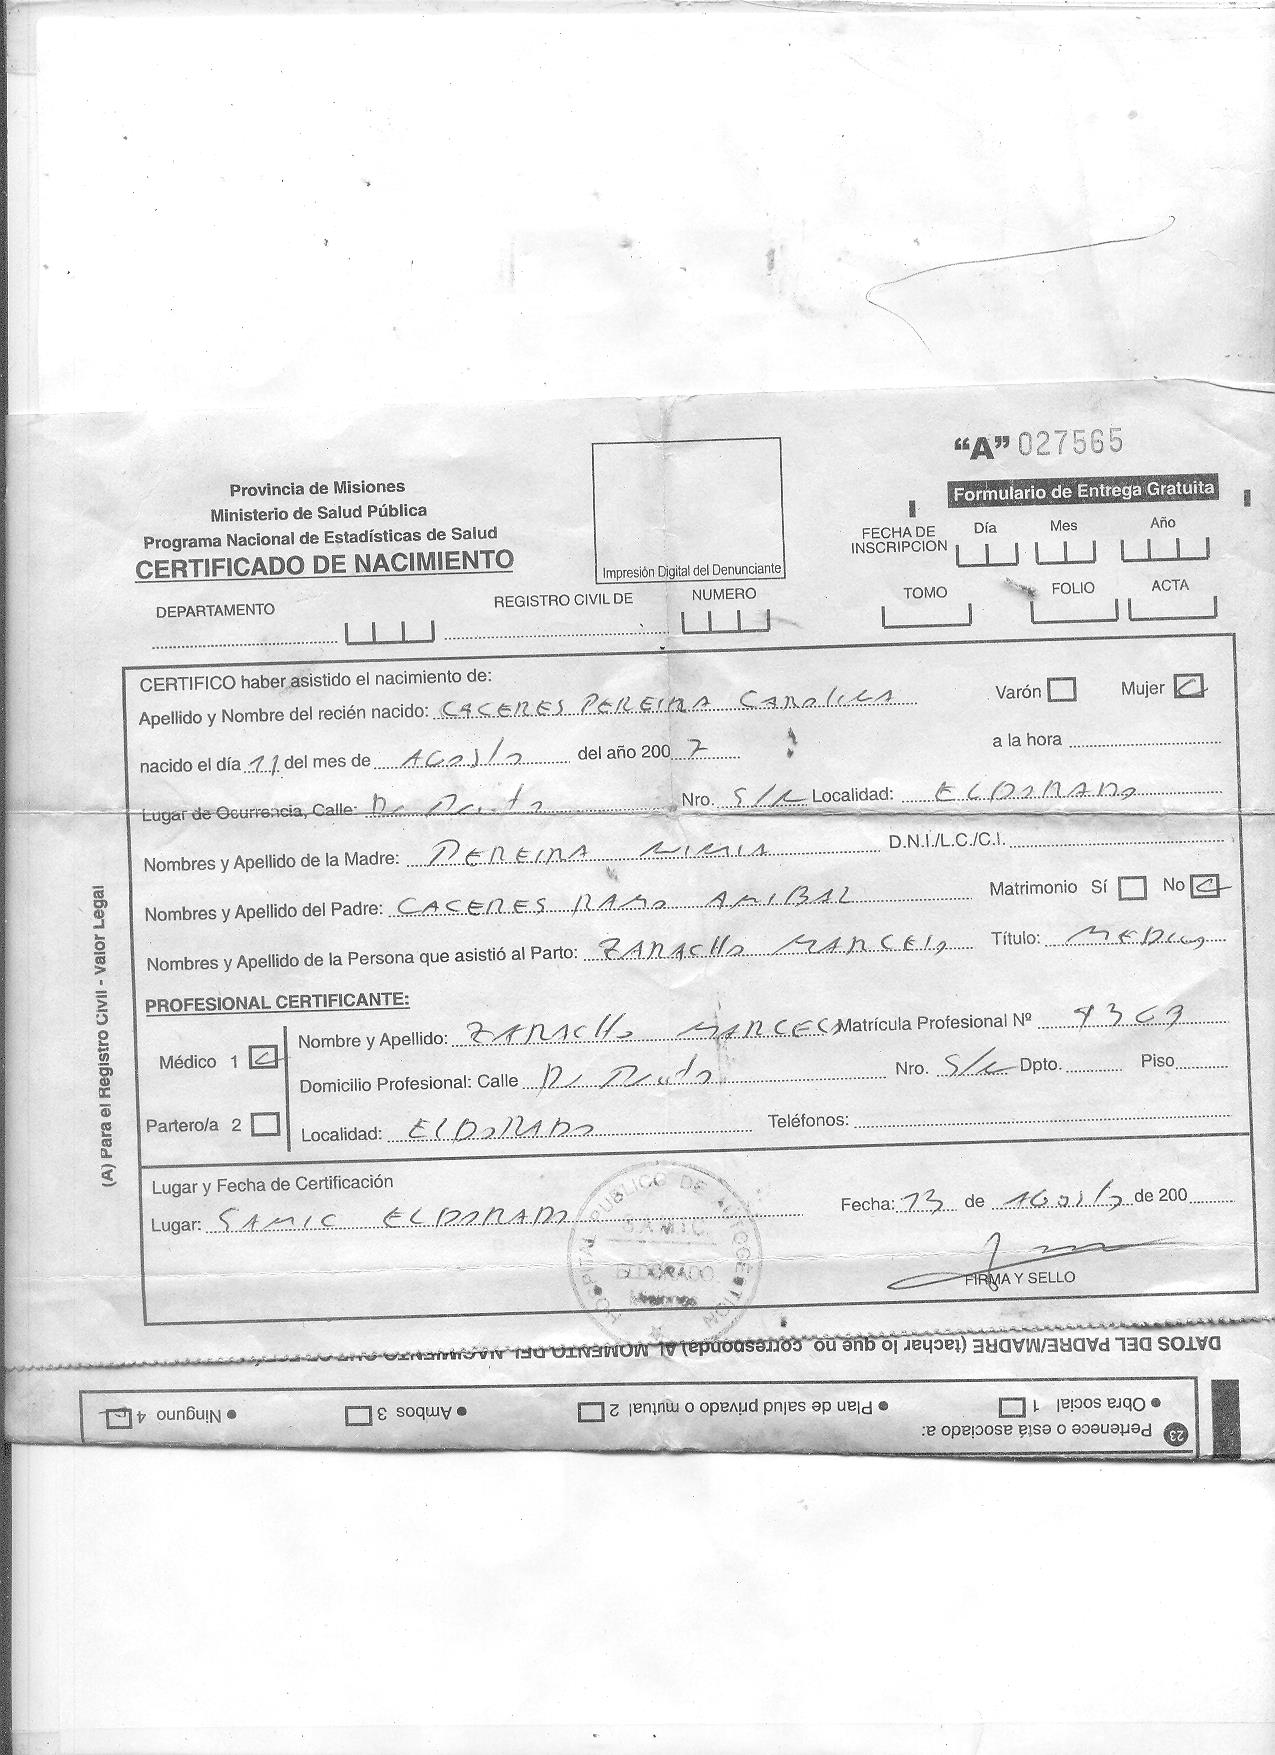 "A" 027565
Provincia de Misiones
Ministerio de Salud Pública
Programa Nacional de Estadísticas de Salud
CERTIFICADO DE NACIMIENTO
Impresión Digital del Denunciante
Formulario de Entrega Gratuita
FECHA DE INSCRIPCION Día Mes Año
DEPARTAMENTO REGISTRO CIVIL DE NUMERO TOMO FOLIO ACTA
CERTIFICO haber asistido el nacimiento de:
Apellido y Nombre del recién nacido: CACERES PEREIRA CAROLINA Varón Mujer
nacido el día 11 del mes de AGOSTO del año 2007 a la hora
Lugar de Ocurrencia, Calle: Nro. S/N Localidad: ELDORADO
Nombres y Apellido de la Madre: PEREIRA D.N.I./L.C./C.I.
Nombres y Apellido del Padre: CACERES ANIBAL Matrimonio Sí No
Nombres y Apellido de la Persona que asistió al Parto: ZARACHO MARCELO Título: MEDICO
PROFESIONAL CERTIFICANTE:
Nombre y Apellido: ZARACHO MARCELO Matrícula Profesional Nº
Médico 1
Domicilio Profesional: Calle Nro. S/N Dpto. Piso
Partero/a 2
Localidad: ELDORADO Teléfonos:
(A) Para el Registro Civil - Valor Legal
Lugar y Fecha de Certificación
Lugar: SAMIC ELDORADO Fecha: 13 de AGOSTO de 200
FIRMA Y SELLO
HOSPITAL PUBLICO DE AUTOGESTION
S.A.M.I.C.
ELDORADO
Misiones
DATOS DEL PADRE/MADRE (tachar lo que no corresponda) AL MOMENTO DEL NACIMIENTO
23 Pertenece o está asociado a:
• Obra social 1 • Plan de salud privado o mutual 2 • Ambos 3 • Ninguno 4